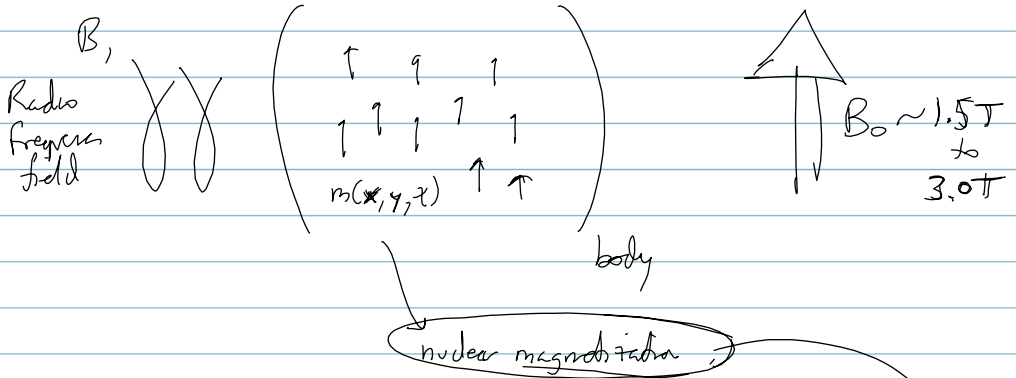 B₁
Radio
frequency
field
m(x, y, z)
body
B₀ ~ 1.5T
to
3.0T
nuclear magnetization